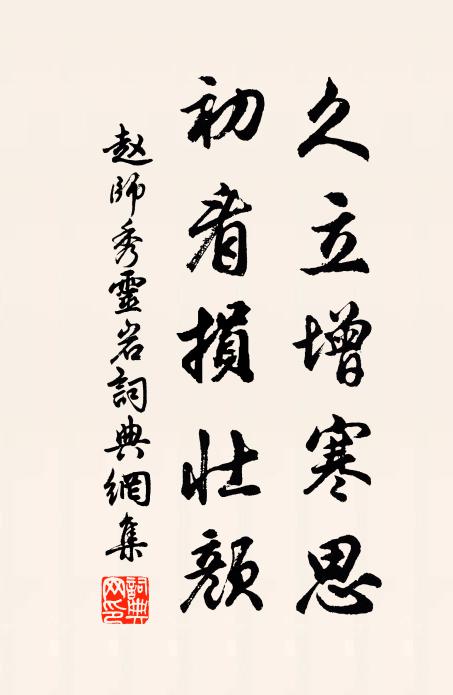 久立增寒思
初看損壯顏
赵師秀靈岩詞典網集
詞典網印